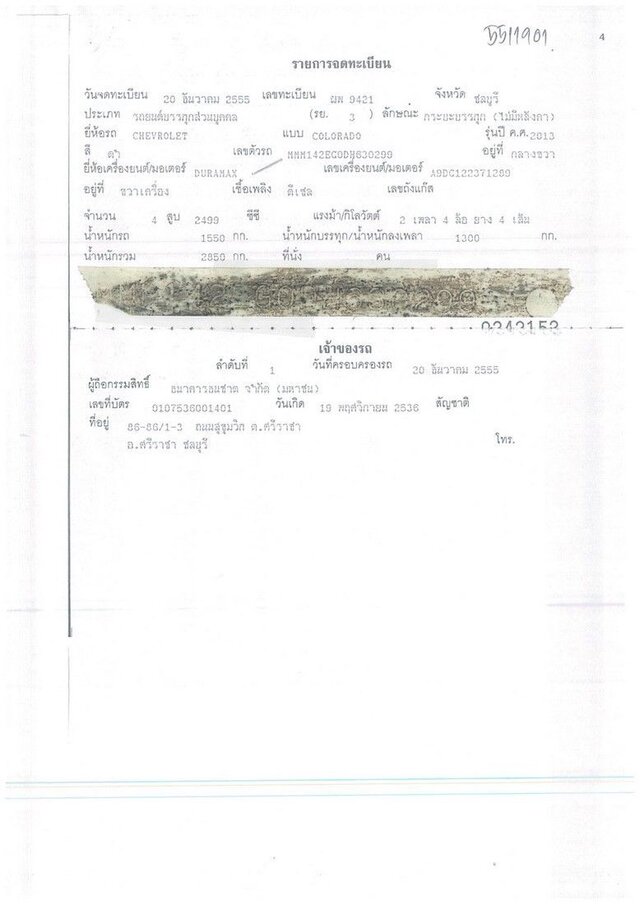 5511901
4
รายการจดทะเบียน
วันจดทะเบียน 20 ธันวาคม 2555 เลขทะเบียน ผพ 9421 จังหวัด ชลบุรี
ประเภท รถยนต์บรรทุกส่วนบุคคล (รย. 3 ) ลักษณะ กระบะบรรทุก (ไม่มีหลังคา)
ยี่ห้อรถ CHEVROLET แบบ COLORADO รุ่นปี ค.ศ. 2013
สี ดำ เลขตัวรถ MMM142EC0DH630299 อยู่ที่ กลางขวา
ยี่ห้อเครื่องยนต์/มอเตอร์ DURAMAX เลขเครื่องยนต์/มอเตอร์ A9DC122371269
อยู่ที่ ขวาเครื่อง เชื้อเพลิง ดีเซล เลขถังแก๊ส
จำนวน 4 สูบ 2499 ซีซี แรงม้า/กิโลวัตต์ 2 เพลา 4 ล้อ ยาง 4 เส้น
น้ำหนักรถ 1550 กก. น้ำหนักบรรทุก/น้ำหนักลงเพลา 1300 กก.
น้ำหนักรวม 2850 กก. ที่นั่ง คน
เจ้าของรถ
ลำดับที่ 1 วันที่ครอบครองรถ 20 ธันวาคม 2555
ผู้ถือกรรมสิทธิ์ ธนาคารธนชาต จำกัด (มหาชน)
เลขที่บัตร 0107536001401 วันเกิด 19 พฤศจิกายน 2536 สัญชาติ
ที่อยู่ 86-88/1-3 ถนนสุขุมวิท ต.ศรีราชา
อ.ศรีราชา ชลบุรี โทร.